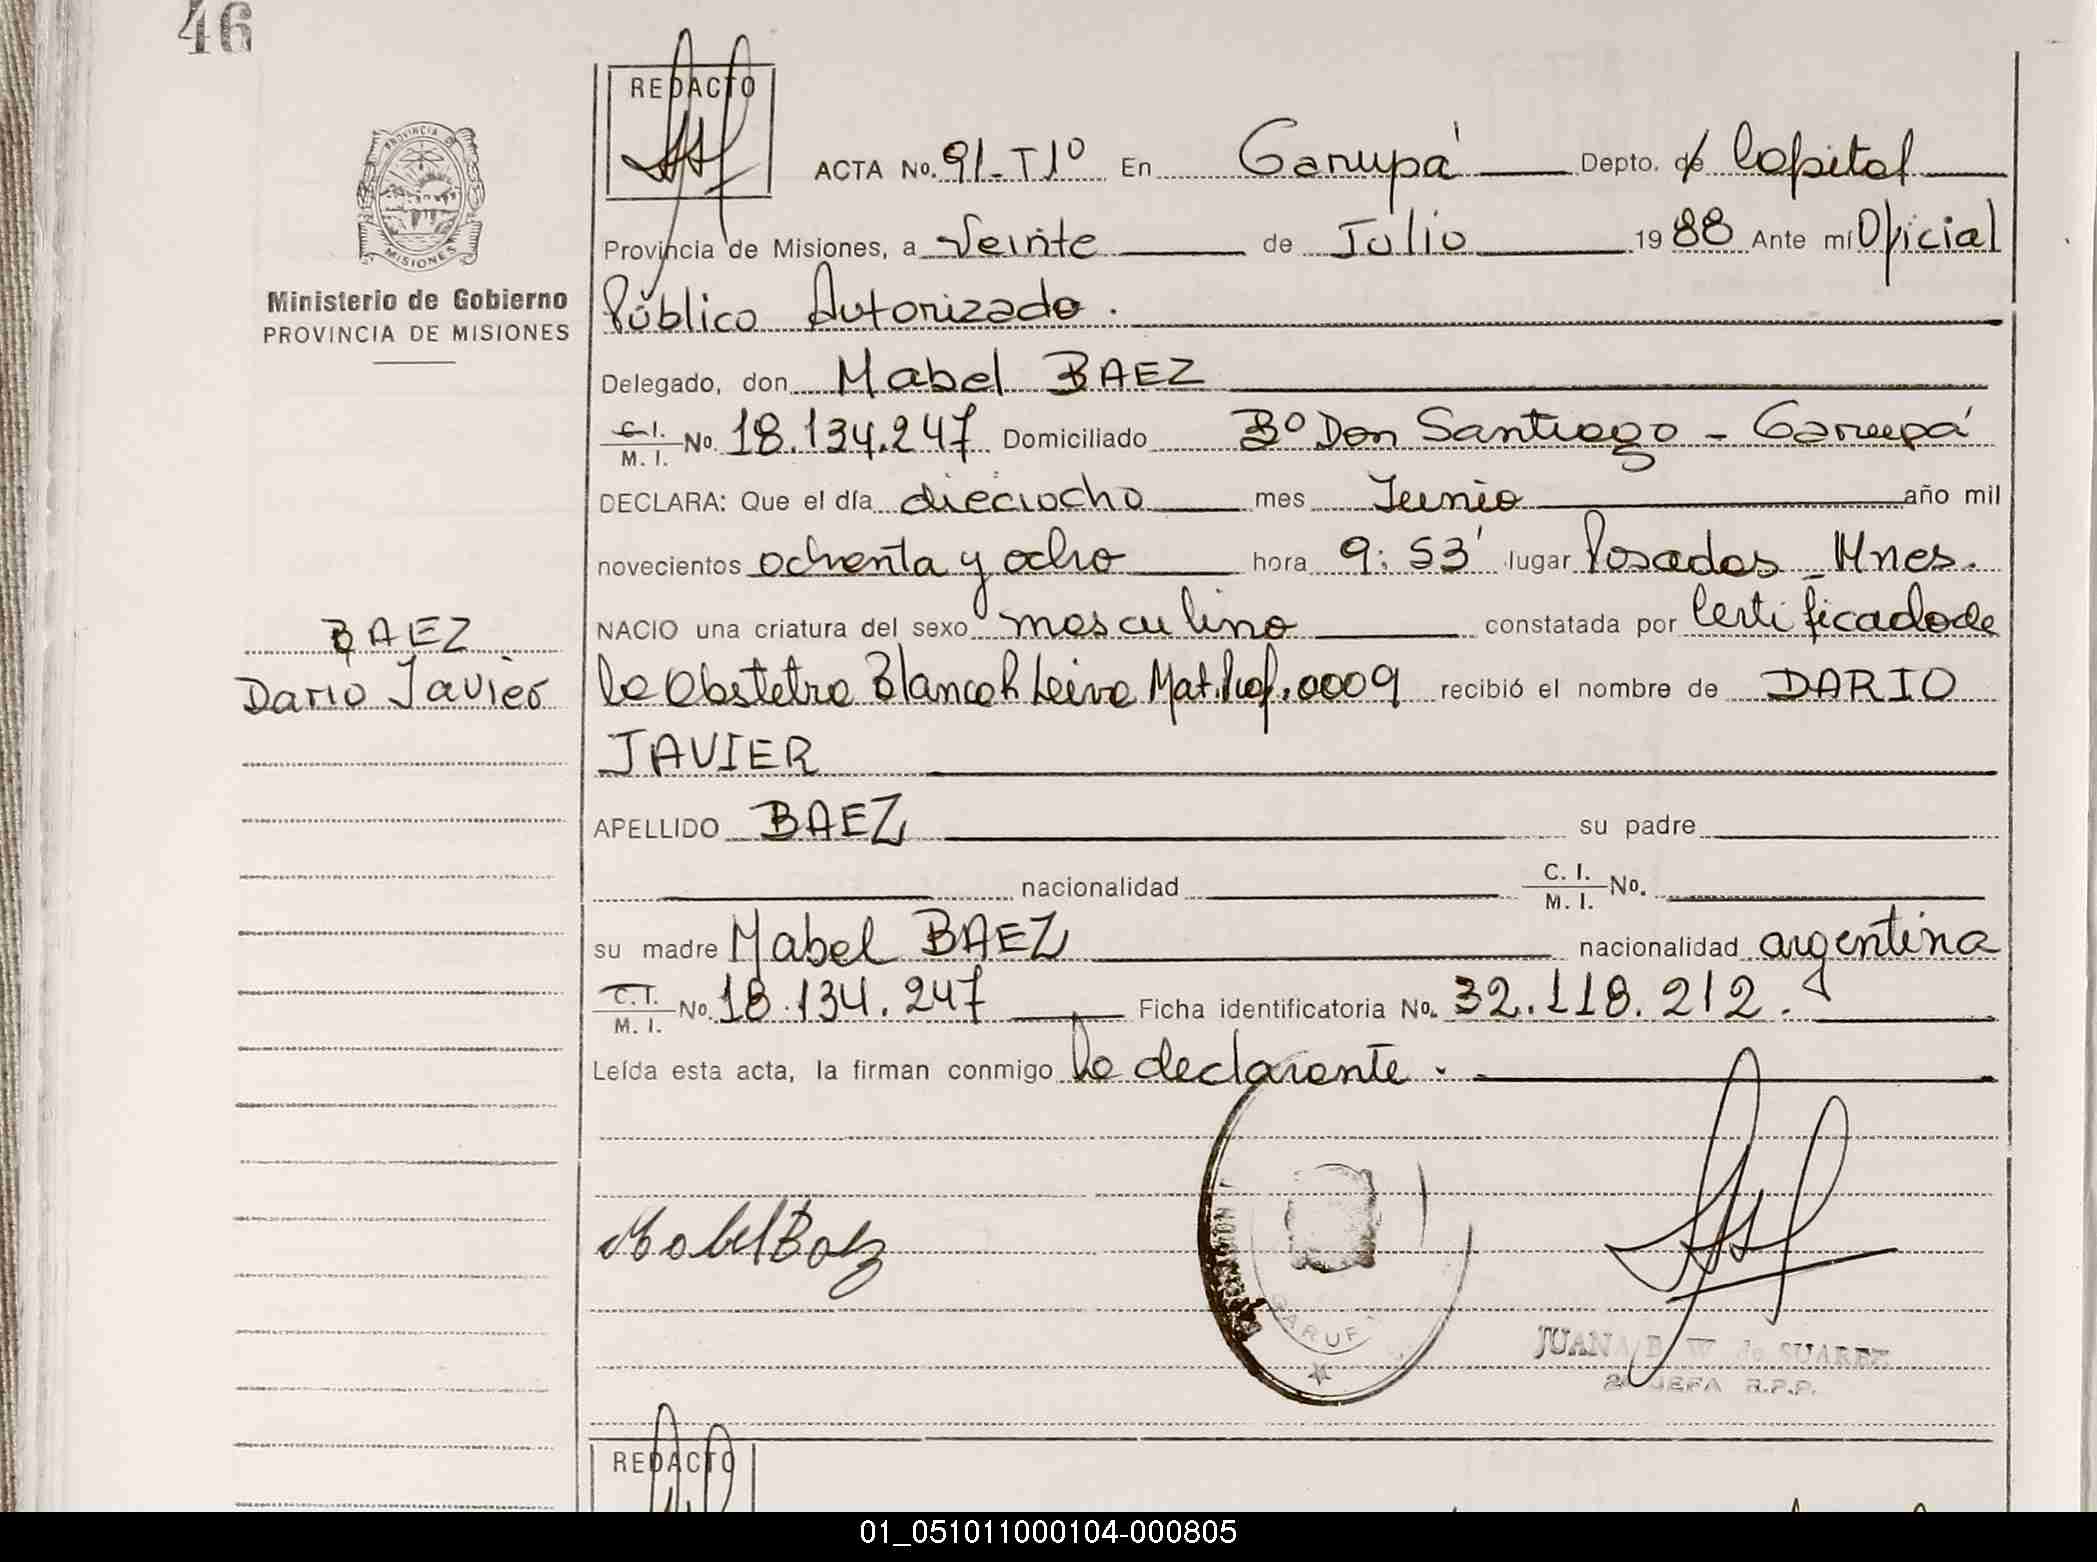 46
REDACTO
PROVINCIA DE
MISIONES
Ministerio de Gobierno
PROVINCIA DE MISIONES
ACTA No. 91-T1º En Garupá Depto. de Capital
Provincia de Misiones, a Veinte de Julio 1988 Ante mí Oficial
Público Autorizado.
Delegado, don Mabel BAEZ
C.I. M.I. No. 18.134.247 Domiciliado Bº Don Santiago - Garupá
DECLARA: Que el día dieciocho mes Junio año mil
novecientos ochenta y ocho hora 9:53' lugar Posadas - Mnes.
BAEZ
NACIO una criatura del sexo masculino constatada por Certificado de
Dario Javier
la Obstetra Blanca R Leiva Mat. Prof. 0009 recibió el nombre de DARIO
JAVIER
APELLIDO BAEZ su padre
nacionalidad C. I. M. I. No.
su madre Mabel BAEZ nacionalidad argentina
C.I. M. I. No. 18.134.247 Ficha identificatoria No. 32.118.212.
Leída esta acta, la firman conmigo la declarante.
Mabel Baez
JUANA B. W de SUAREZ
2º JEFA R.P.P.
REDACTO
01_051011000104-000805